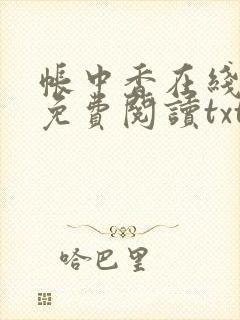 帳中香在綫
免費閱讀txt
哈巴里